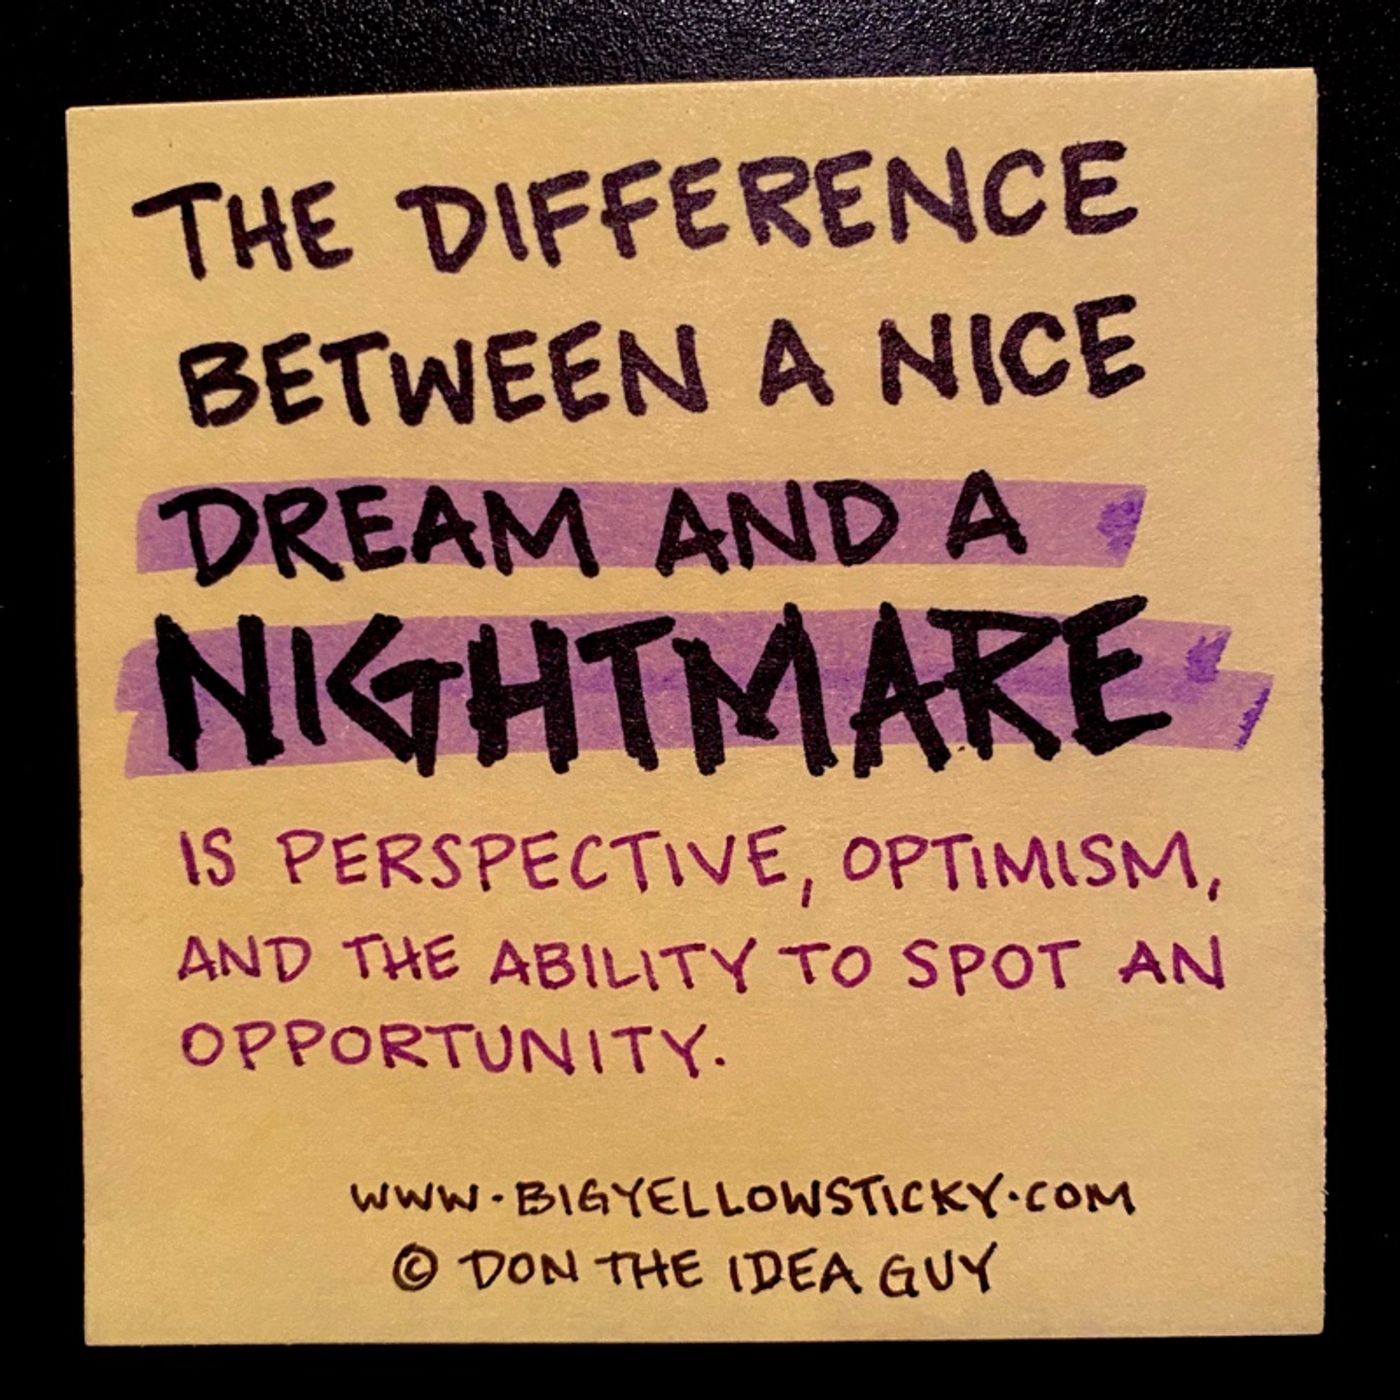 THE DIFFERENCE
BETWEEN A NICE
DREAM AND A
NIGHTMARE
IS PERSPECTIVE, OPTIMISM,
AND THE ABILITY TO SPOT AN
OPPORTUNITY.
WWW.BIGYELLOWSTICKY.COM
© DON THE IDEA GUY